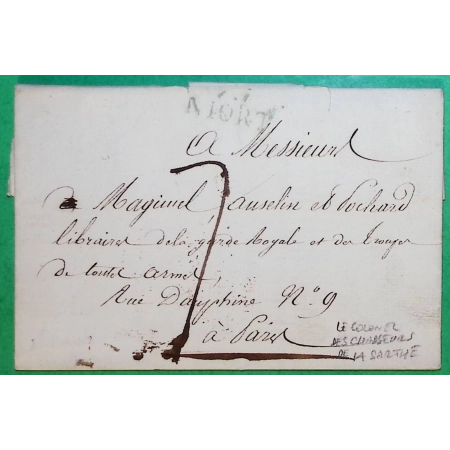 NIORT
A Messieurs
Magimel, anselin et Pochard
libraires de la garde Royale et des Troupes
de toutes armes
Rue Dauphine N.o 9
à Paris
7
LE COLONEL
DES CHASSEURS
DE LA SARTHE